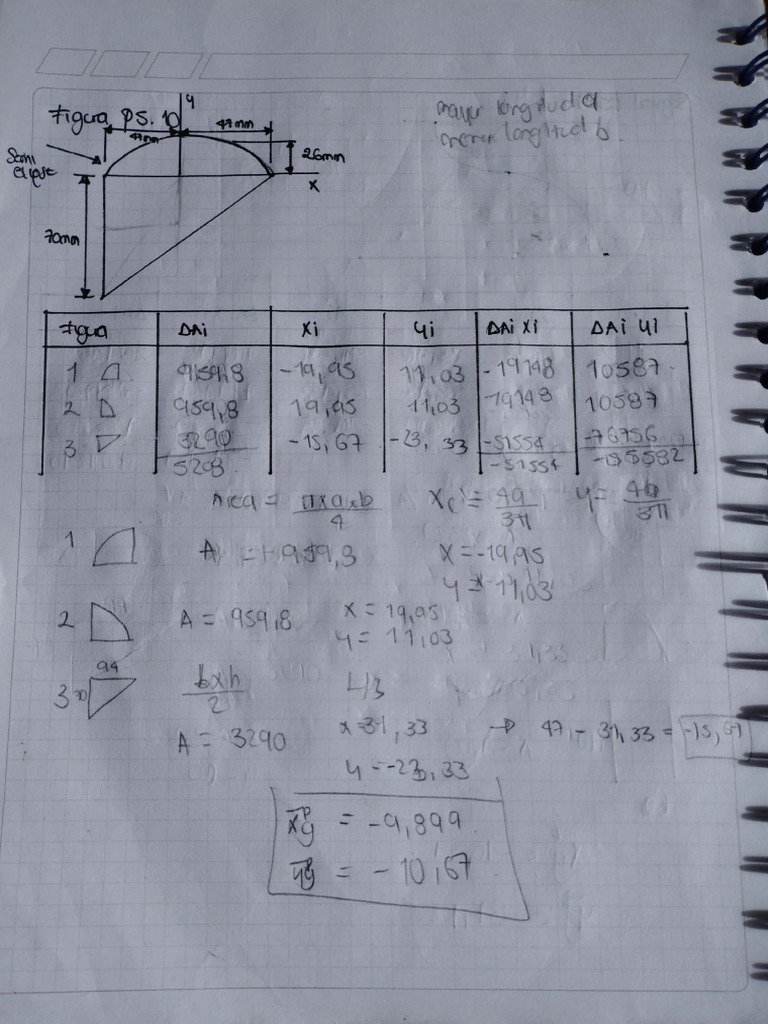 Figura P5.10
y
47mm
47mm
mayor longitud a
menor longitud b
Semi
elipse
26mm
x
70mm
Figura ΔAi Xi Yi ΔAi Xi ΔAi Yi
1 959,8 -19,95 11,03 -19148 10587
2 959,8 19,95 11,03 19148 10587
3 3290 -15,67 -23,33 -51554 -76756
5208 -51554 -55582
Area = πxaxb/4 Xc = 4a/3π y = 4b/3π
1 A = 959,8 x = -19,95
y = 11,03
2 A = 959,8 x = 19,95
y = 11,03
94
3 70 bxh/2 L/3
A = 3290 x = 31,33 → 47 - 31,33 = -15,67
y = -23,33
x̄g = -9,899
ȳg = -10,67